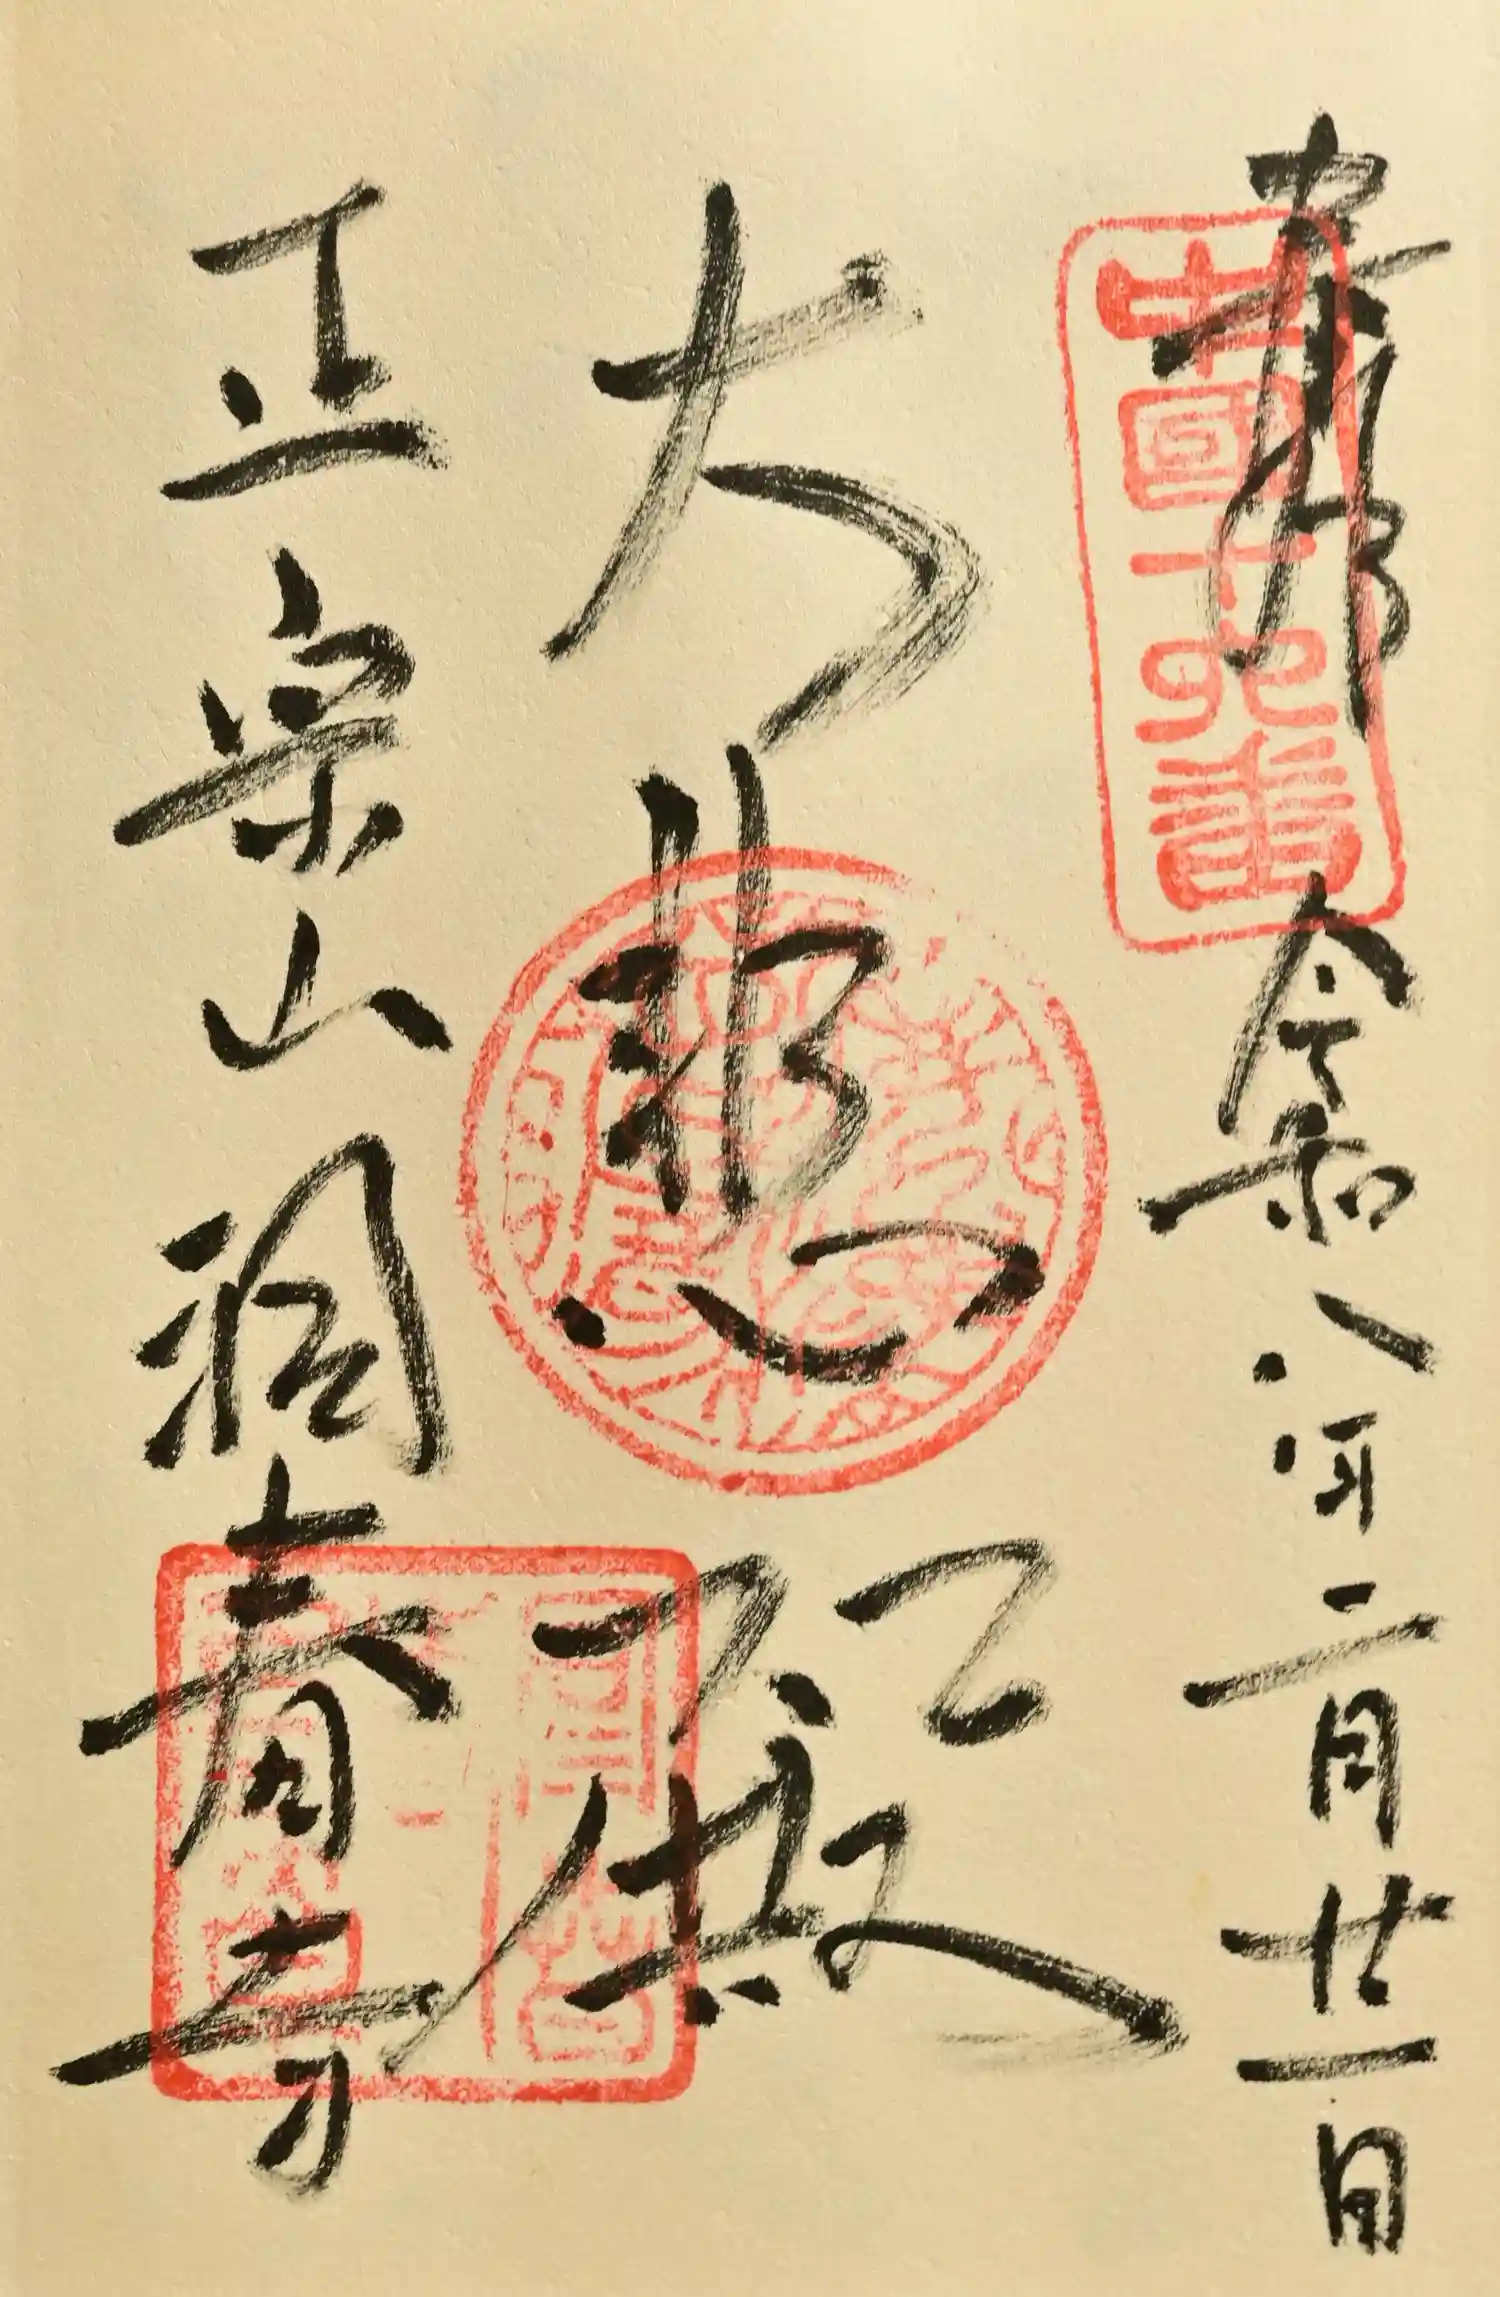 奉拝 令和八年二月廿一日
中國十六番
大悲殿
正宗山洞春寺